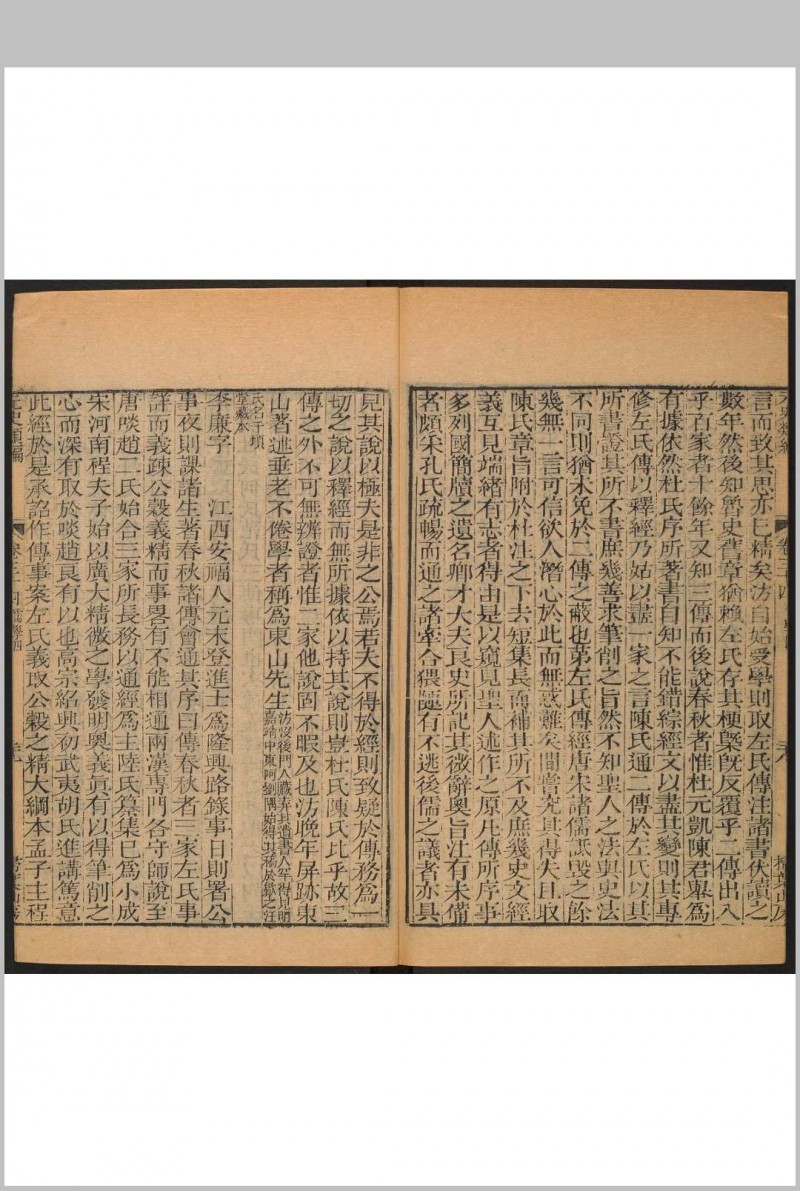 言而致其思亦已精矣汸自始受學則取左氏傳注諸書伏讀之
數年然後知魯史舊章猶賴左氏存其梗槩既反覆乎二傳出入
乎百家者十餘年又知三傳而後說春秋者惟杜元凱陳君舉為
有據依然杜氏序所著書自知不能錯綜經文以盡其變則其專
修左氏傳以釋經乃姑以盡一家之言陳氏通二傳於左氏以其
所書證其所不書庶幾善求筆削之旨然不知聖人之法與史法
不同則猶未免於二傳之蔽也第左氏傳經唐宋諸儒詆毀之餘
幾無一言可信欲人潛心於此而無惑難矣間嘗究其得失且取
陳氏章旨附於杜注之下去短集長而補其所不及庶幾史文經
義互見端緒有志者得由是以窺見聖人述作之原凡傳所序事
多列國簡牘之遺名卿才大夫良史所記其微辭奧旨注有未備
者頗采孔氏疏暢而通之諸牽合猥陋有不逃後儒之議者亦具
見其說以極夫是非之公焉若夫不得於經則致疑於傳務為一
切之說以釋經而無所據依以持其說則豈杜氏陳氏比乎故三
傳之外不可無辨證者惟二家他說固不暇及也汸晚年屏跡東
山著述垂老不倦學者稱為東山先生汸沒後門人藏弆其遺書人罕得見明
嘉靖中東阿劉隅始得其稿於歙之汪
氏名千頃
堂藏本
李廉字　江西安福人元末登進士為隆興路錄事日則署公
事夜則課諸生著春秋諸傳會通其序曰傳春秋者三家左氏事
詳而義疎公穀義精而事畧有不能相通兩漢専門各守師說至
唐啖趙二氏始合三家所長務以通經為主陸氏纂集已為小成
宋河南程夫子始以廣大精微之學發明奧義眞有以得筆削之
心而深有取於啖趙良有以也高宗紹興初武夷胡氏進講篤意
此經於是承詔作傳事案左氏義取公穀之精大綱本孟子主程
元史類編
卷三十四儒學四